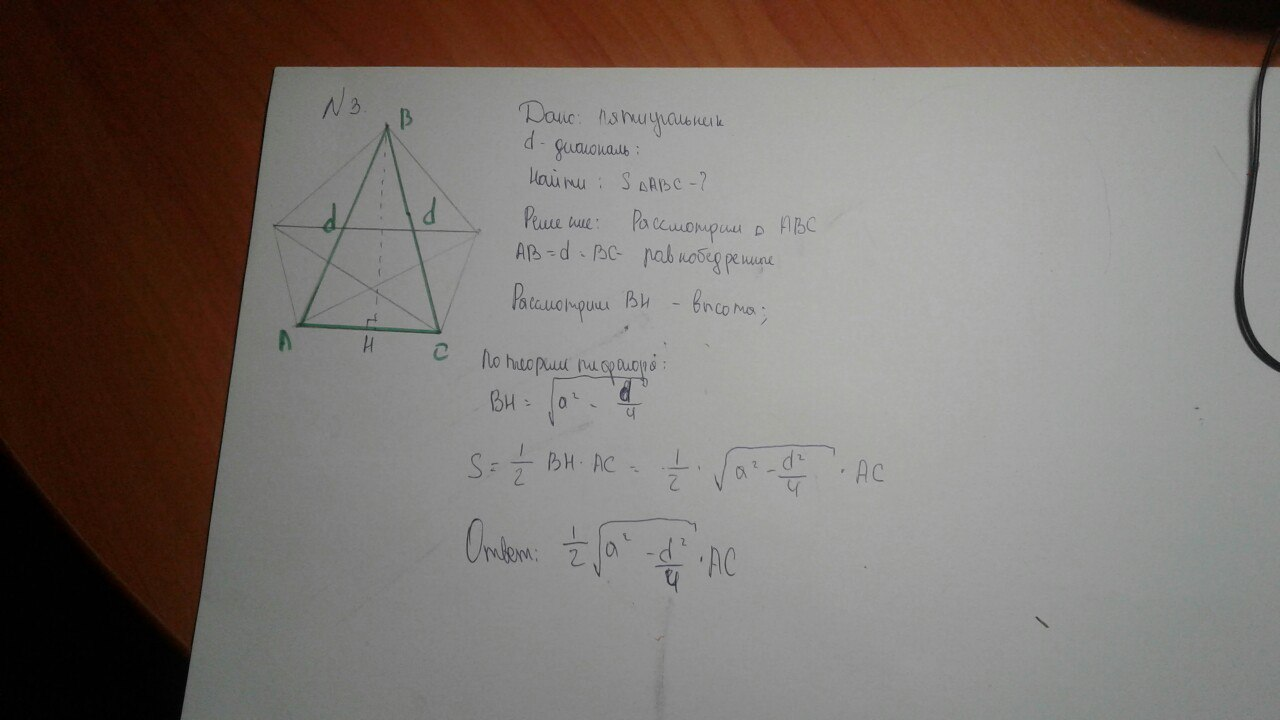 N 3.
B
d
d
A
H
C
Дано: пятиугольник
d - диагональ:
Найти: S △ABC - ?
Решение: Рассмотрим △ ABC
AB = d = BC - равнобедренные
Рассмотрим BH - высота;
По теореме пифагора:
BH = √a² - d/4
S = 1/2 BH · AC = 1/2 · √a² - d²/4 · AC
Ответ: 1/2 √a² - d²/4 · AC